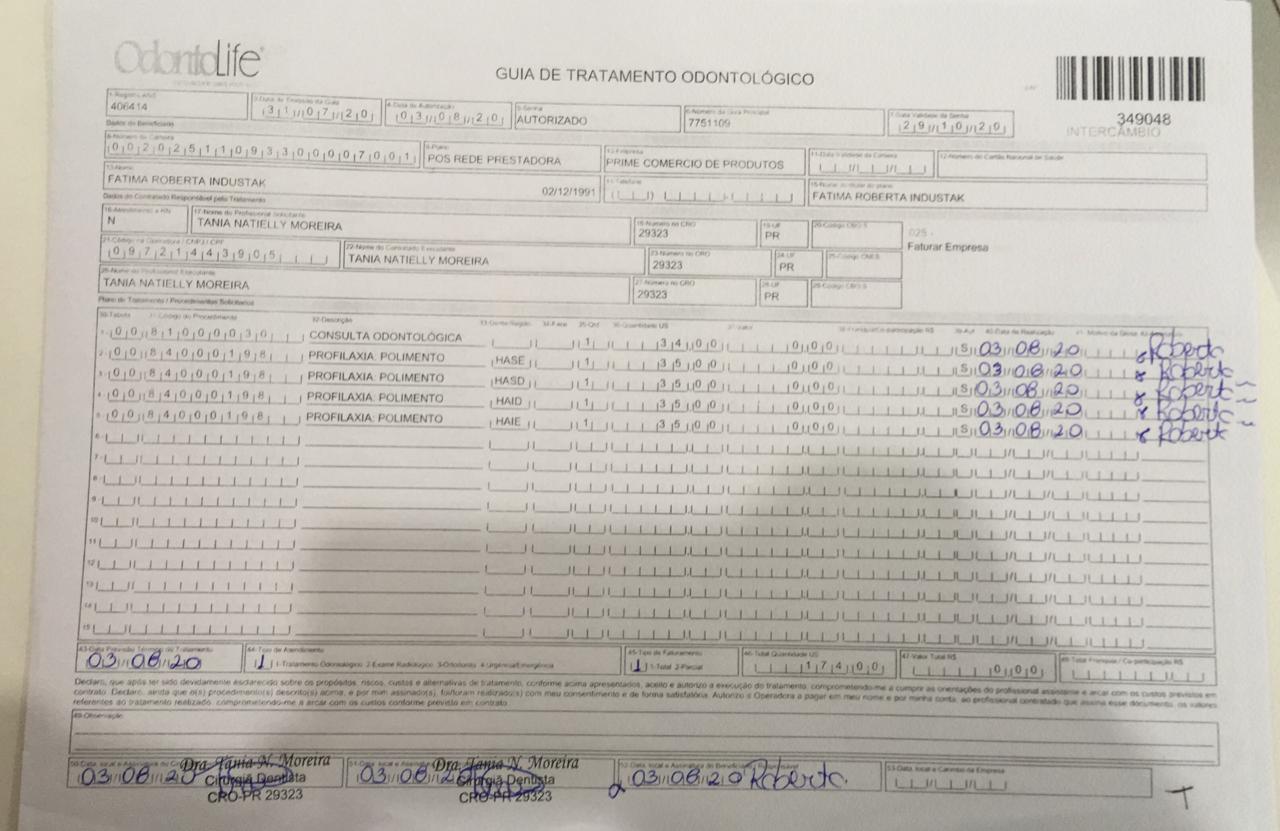 OdontoLife
GUIA DE TRATAMENTO ODONTOLÓGICO
349048
INTERCÂMBIO
1-Registro ANS
406414
3-Data de Emissão da Guia
31/07/20
4-Data de Autorização
03/08/20
5-Senha
AUTORIZADO
6-Número da Guia Principal
7751109
7-Data Validade da Senha
29/10/20
Dados do Beneficiário
8-Número da Carteira
00202511093300007001
9-Plano
POS REDE PRESTADORA
10-Empresa
PRIME COMERCIO DE PRODUTOS
11-Data Validade da Carteira
12-Número do Cartão Nacional de Saúde
13-Nome
FATIMA ROBERTA INDUSTAK
02/12/1991
14-Telefone
15-Nome do titular do plano
FATIMA ROBERTA INDUSTAK
Dados do Contratado Responsável pelo Tratamento
16-Atendimento a RN
N
17-Nome do Profissional Solicitante
TANIA NATIELLY MOREIRA
18-Número no CRO
29323
19-UF
PR
20-Código CBO S
025 -
Faturar Empresa
21-Código na Operadora / CNPJ / CPF
09721443905
22-Nome do Contratado Executante
TANIA NATIELLY MOREIRA
23-Número no CRO
29323
24-UF
PR
25-Código CNES
26-Nome do Profissional Executante
TANIA NATIELLY MOREIRA
27-Número no CRO
29323
28-UF
PR
29-Código CBO S
Plano de Tratamento / Procedimentos Solicitados
30-Tabela 31-Código do Procedimento 32-Descrição 33-Dente/Região 34-Face 35-Qtd 36-Quantidade US 37-Valor 38-Franquia/Co-participação R$ 39-Aut 40-Data de Realização
1- 00 81000030 CONSULTA ODONTOLÓGICA 1 34,00 0,00 S 03/08/20 Roberta
2- 00 84000198 PROFILAXIA: POLIMENTO HASE 1 35,00 0,00 S 03/08/20 Roberta
3- 00 84000198 PROFILAXIA: POLIMENTO HASD 1 35,00 0,00 S 03/08/20 Roberta
4- 00 84000198 PROFILAXIA: POLIMENTO HAID 1 35,00 0,00 S 03/08/20 Roberta
5- 00 84000198 PROFILAXIA: POLIMENTO HAIE 1 35,00 0,00 S 03/08/20 Roberta
6-
7-
8-
9-
10-
11-
12-
13-
14-
15-
43-Data Previsão Término do Tratamento
03/08/20
44-Tipo de Atendimento
1 1-Tratamento Odontológico 2-Exame Radiológico 3-Ortodontia 4-Urgência/Emergência
45-Tipo de Faturamento
1 1-Total 2-Parcial
46-Total Quantidade US
174,00
47-Valor Total R$
0,00
48-Total Franquia / Co-participação R$
Declaro, que após ter sido devidamente esclarecido sobre os propósitos, riscos, custos e alternativas de tratamento, conforme acima apresentados, aceito e autorizo a execução do tratamento, comprometendo-me a cumprir as orientações do profissional assistente e arcar com os custos previstos em
contrato. Declaro, ainda que o(s) procedimento(s) descrito(s) acima, e por mim assinado(s), foi/foram realizado(s) com meu consentimento e de forma satisfatória. Autorizo a Operadora a pagar em meu nome e por minha conta, ao profissional contratado que assina esse documento, os valores
referentes ao tratamento realizado, comprometendo-me a arcar com os custos conforme previsto em contrato.
49-Observação
03/08/20
Dra. Tania N. Moreira
Cirurgiã Dentista
CRO-PR 29323
03/08/20
Dra. Tania N. Moreira
Cirurgiã Dentista
CRO-PR 29323
03/08/20 Roberta
53-Data, local e Carimbo da Empresa